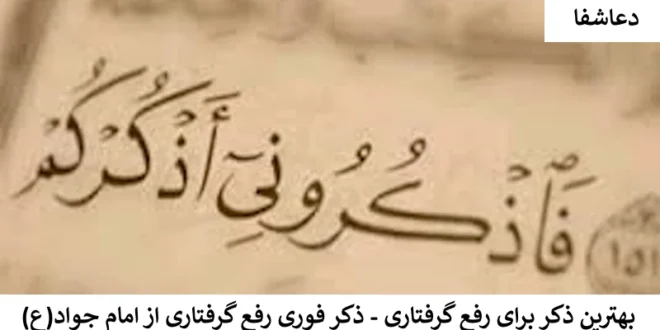 دعاشفا
١٥١ فَٱذْكُرُونِىٓ أَذْكُرْكُمْ
بهترین ذکر برای رفع گرفتاری - ذکر فوری رفع گرفتاری از امام جواد(ع)